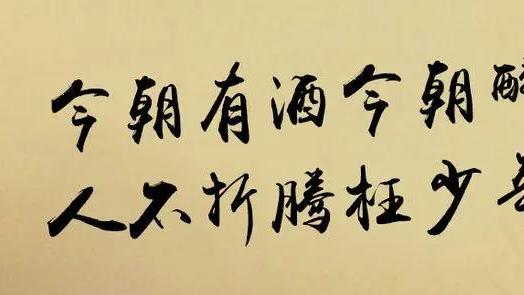 今朝有酒今朝
人不折腾枉少